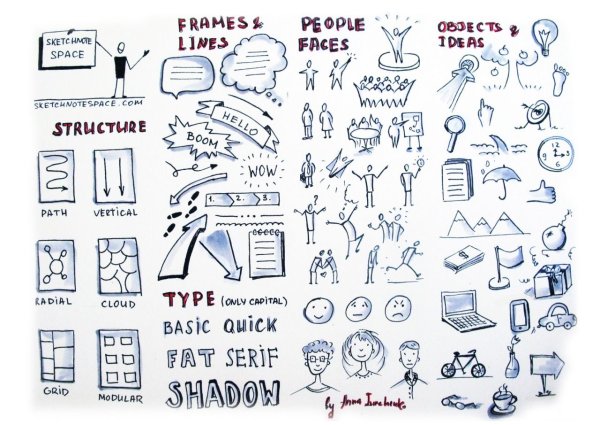 SKETCHNOTE
SPACE
SKETCHNOTESPACE.COM
STRUCTURE
PATH
VERTICAL
RADIAL
CLOUD
GRID
MODULAR
FRAMES &
LINES
HELLO
BOOM
WOW
1. 2. 3.
TYPE (ONLY CAPITAL)
BASIC QUICK
FAT SERIF
SHADOW
PEOPLE
FACES
?
by Anna Iurchenko
OBJECTS &
IDEAS
12
9 3